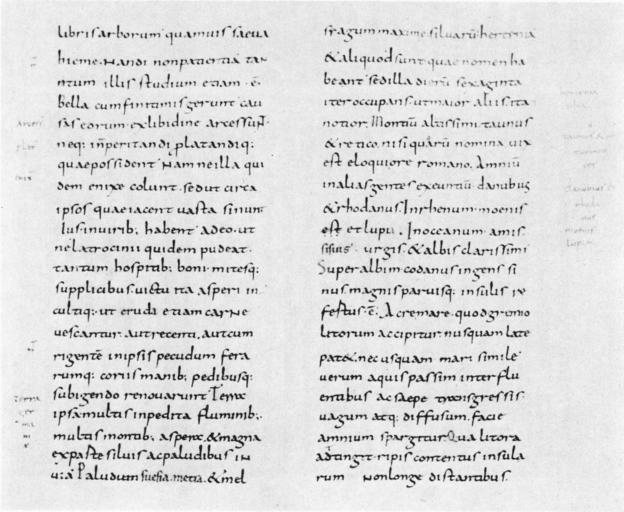 libris arborum quamuis saeua
hieme. Nandi non patientiā tan
ntum illis studium etiam . ē .
Bella cum finitimis gerunt cau
sas eorum ex libidine arcessunt
neq: inperitandi platandiq:
quae possident Nam neilla qui
dem enixe colunt. sed ut circa
ipsos quae iacent uasta sinunt
Ius inuirib; habent adeo. ut
ne latrocini quidem pudeat.
tantum hospitib; boni. mitesq;
supplicibus. uictu ita asperi in
cultiq; ut cruda etiam carne
vescantur. aut recenti. aut cum
rigentē in ipsis pecudum fera
rumq; coriis manib; pedibusq;
subigendo renouarunt Terra
ipsa multis inpedita fluminib;.
multis montib; aspera. & magna
ex parte siluis ac paludibus in
uia Paludum suesia. metia. & mel
sragum maxime. siluarū hercynia
& aliquod sunt quae nomen ha
beant sed illa dierū sexaginta
iter occupans. ut maior aliis. ita
notior. Montiū altissimi taunus
& retico. nisi quarū nomina uix
est eloqui ore romano. Amniū
in alias gentes exeuntiū. danubius
& rhodanus. In rhenum. moenis
est et lupia. In occanum. amis
sisius . uirgis. & albis clarissimi
Super albim codanus ingens si
nus magnis parvisq; insulis re
fertus . ē . Ac re mare. quod gremio
litorum accipitur nusquam late
pat& nec usquam mari simile
verum aquis passim interflu
entibus ac saepe transgressis
vagum atq; diffusum. facie
amnium spargitur. Qua litora
adtingit ripis contentus insula
rum non longe distantibus.